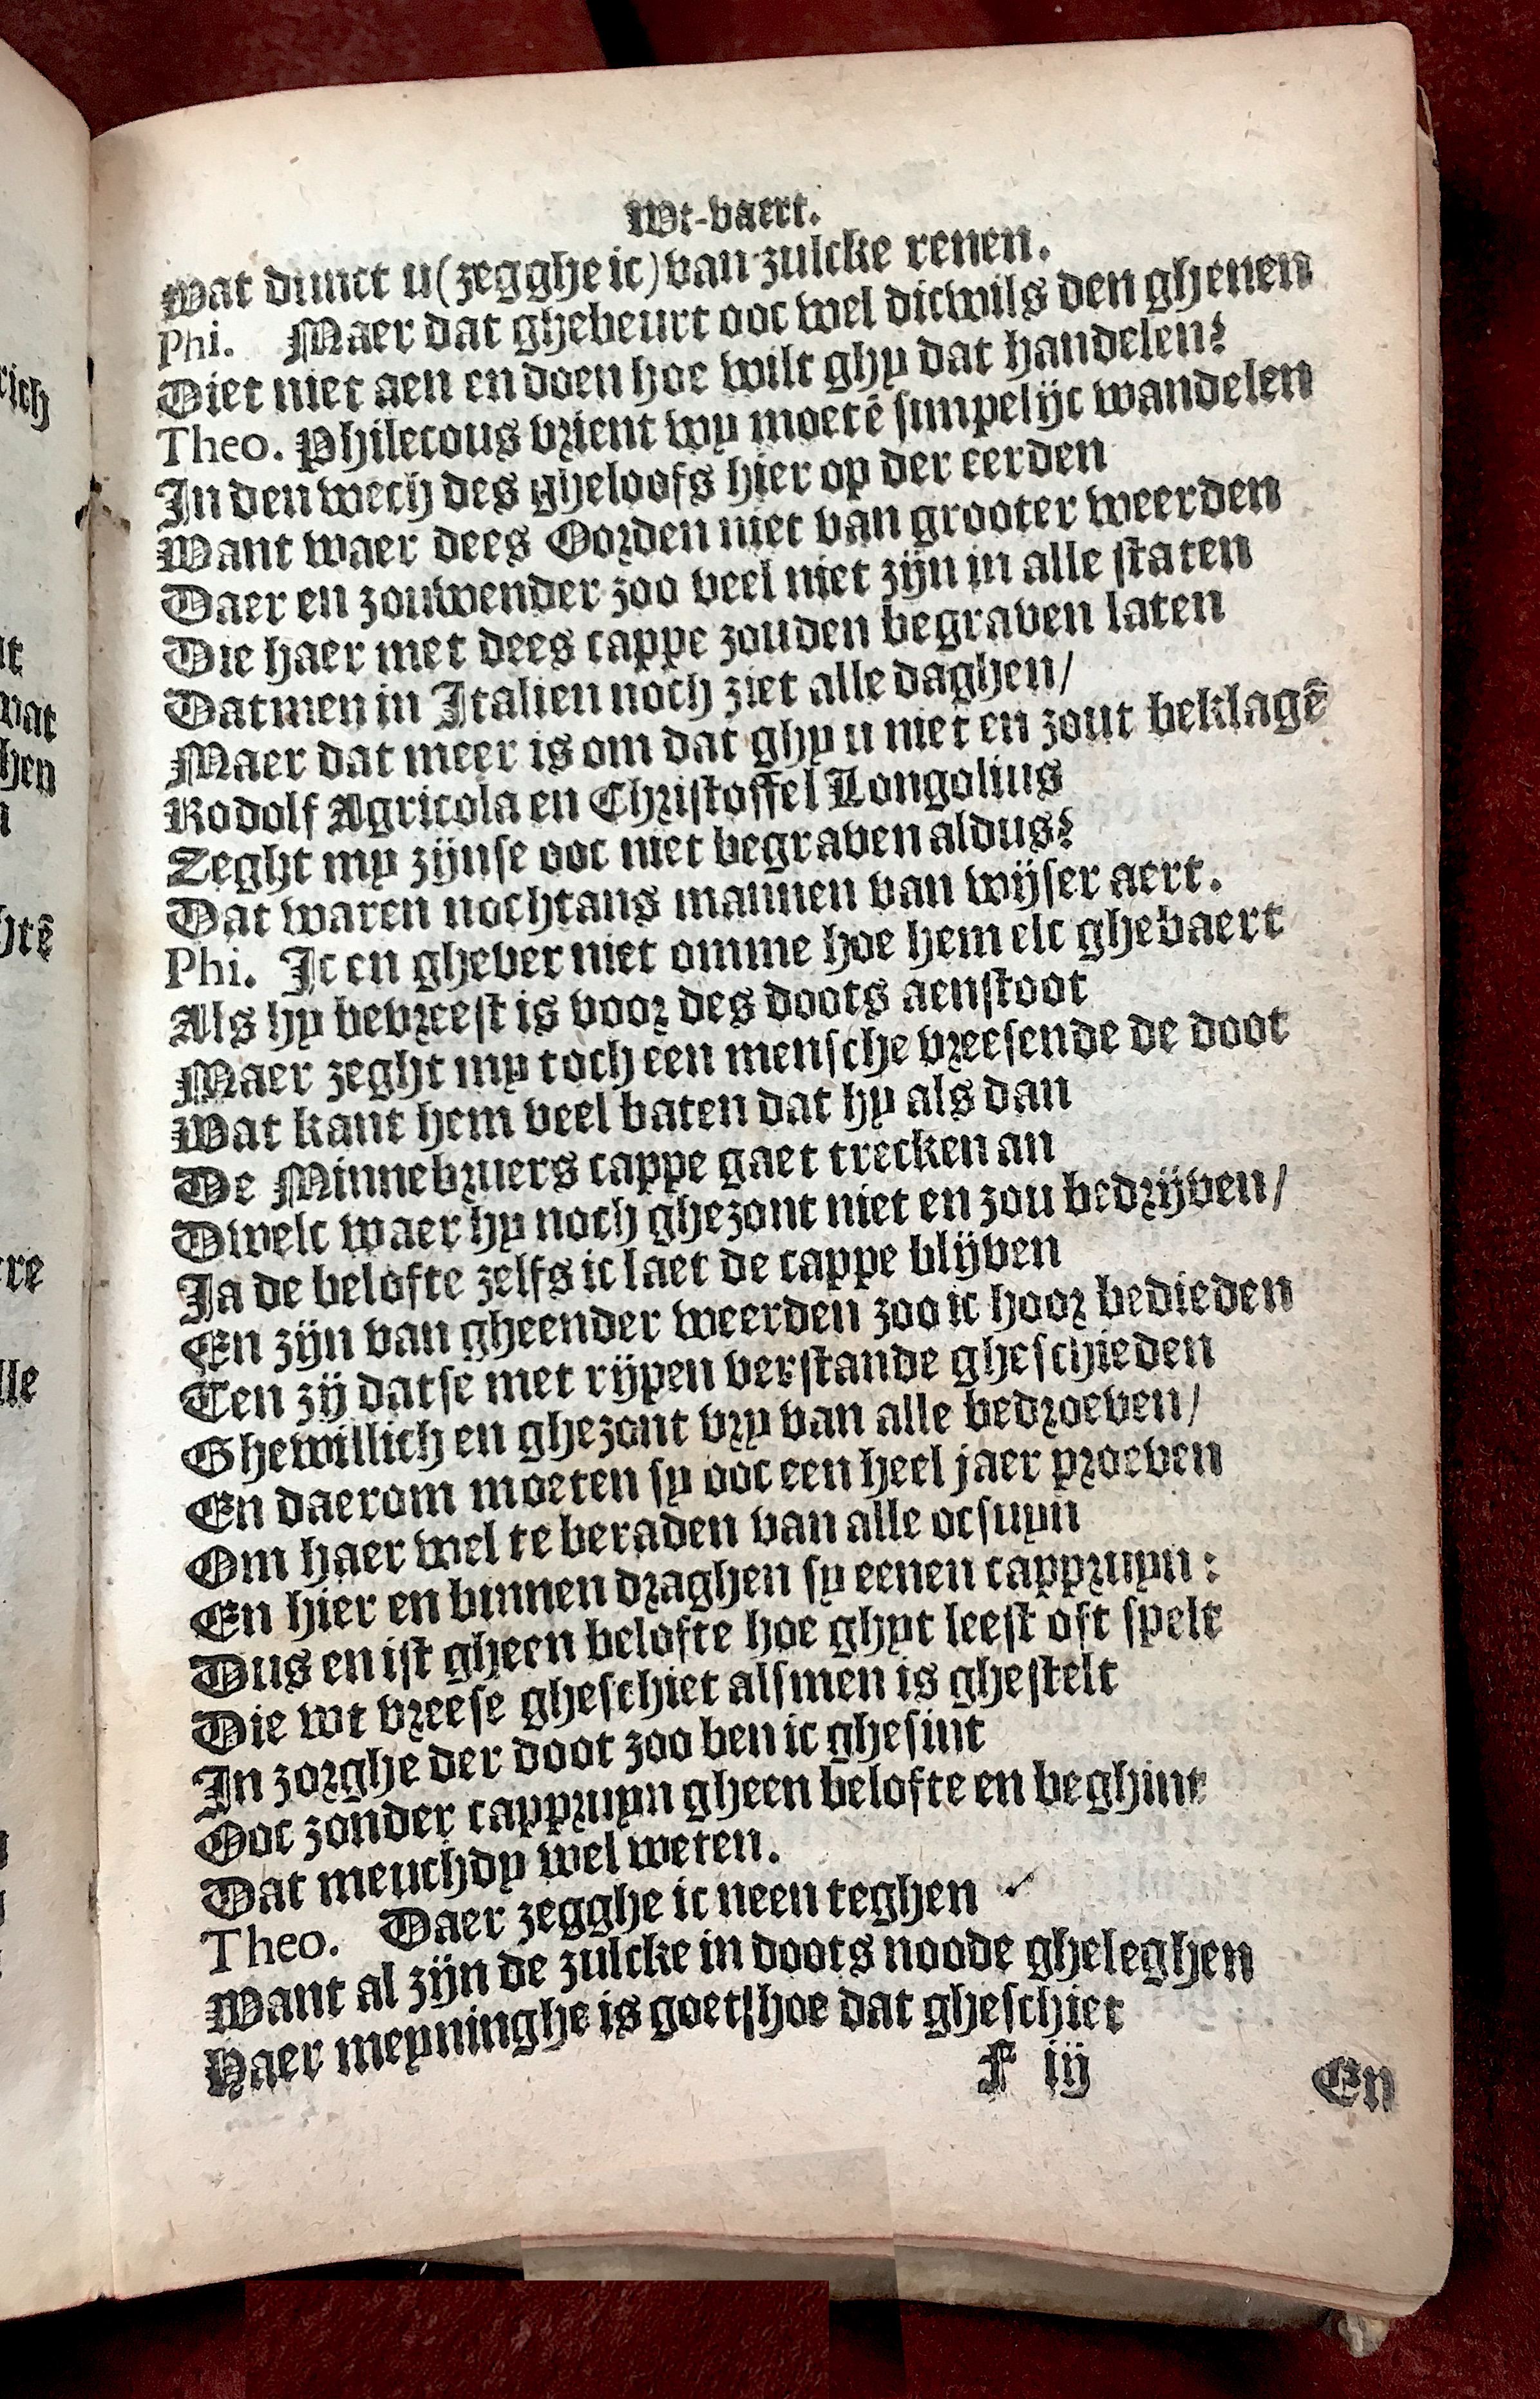 Wt-vaert.
Wat dunct u (zegghe ic) van zulcke renen.
Phi. Maer dat ghebeurt ooc wel dicwils den ghenen
Diet niet aen en doen hoe wilt ghy dat handelen?
Theo. Philecous vrient wy moetē simpelijc wandelen
In den wech des gheloofs hier op der eerden
Want waer dees Oorden niet van grooter weerden
Daer en zouwender zoo veel niet zijn in alle staten
Die haer met dees cappe zouden begraven laten
Datmen in Italien noch ziet alle daghen/
Maer dat meer is om dat ghy u niet en zout beklagē
Rodolf Agricola en Christoffel Longolius
Zeght my zijnse ooc niet begraven aldus?
Dat waren nochtans mannen van wijser aert.
Phi. Ic en ghever niet omme hoe hem elc ghebaert
Als hy bevreest is voor des doots aenstoot
Maer zeght my toch een mensche vreesende de doot
Wat kant hem veel baten dat hy als dan
De Minnebruers cappe gaet trecken an
Dwelc waer hy noch ghezont niet en zou bedrijven/
Ja de belofte zelfs ic laet de cappe blijven
En zijn van gheender weerden zoo ic hoor bedieden
Ten zij datse met rijpen verstande gheschieden
Ghewillich en ghezont vry van alle bedroeven/
En daerom moeten sy ooc een heel jaer proeven
Om haer wel te beraden van alle ocsuyn
En hier en binnen draghen sy eenen cappruyn:
Dus en ist gheen belofte hoe ghyt leest oft spelt
Die wt vreese gheschiet alsmen is ghestelt
In zorghe der doot zoo ben ic ghesint
Ooc zonder cappruyn gheen belofte en beghint
Dat meuchdy wel weten.
Theo. Daer zegghe ic neen teghen
Want al zijn de zulcke in doots noode gheleghen
Haer meyninghe is goet/hoe dat gheschiet
F iij
En